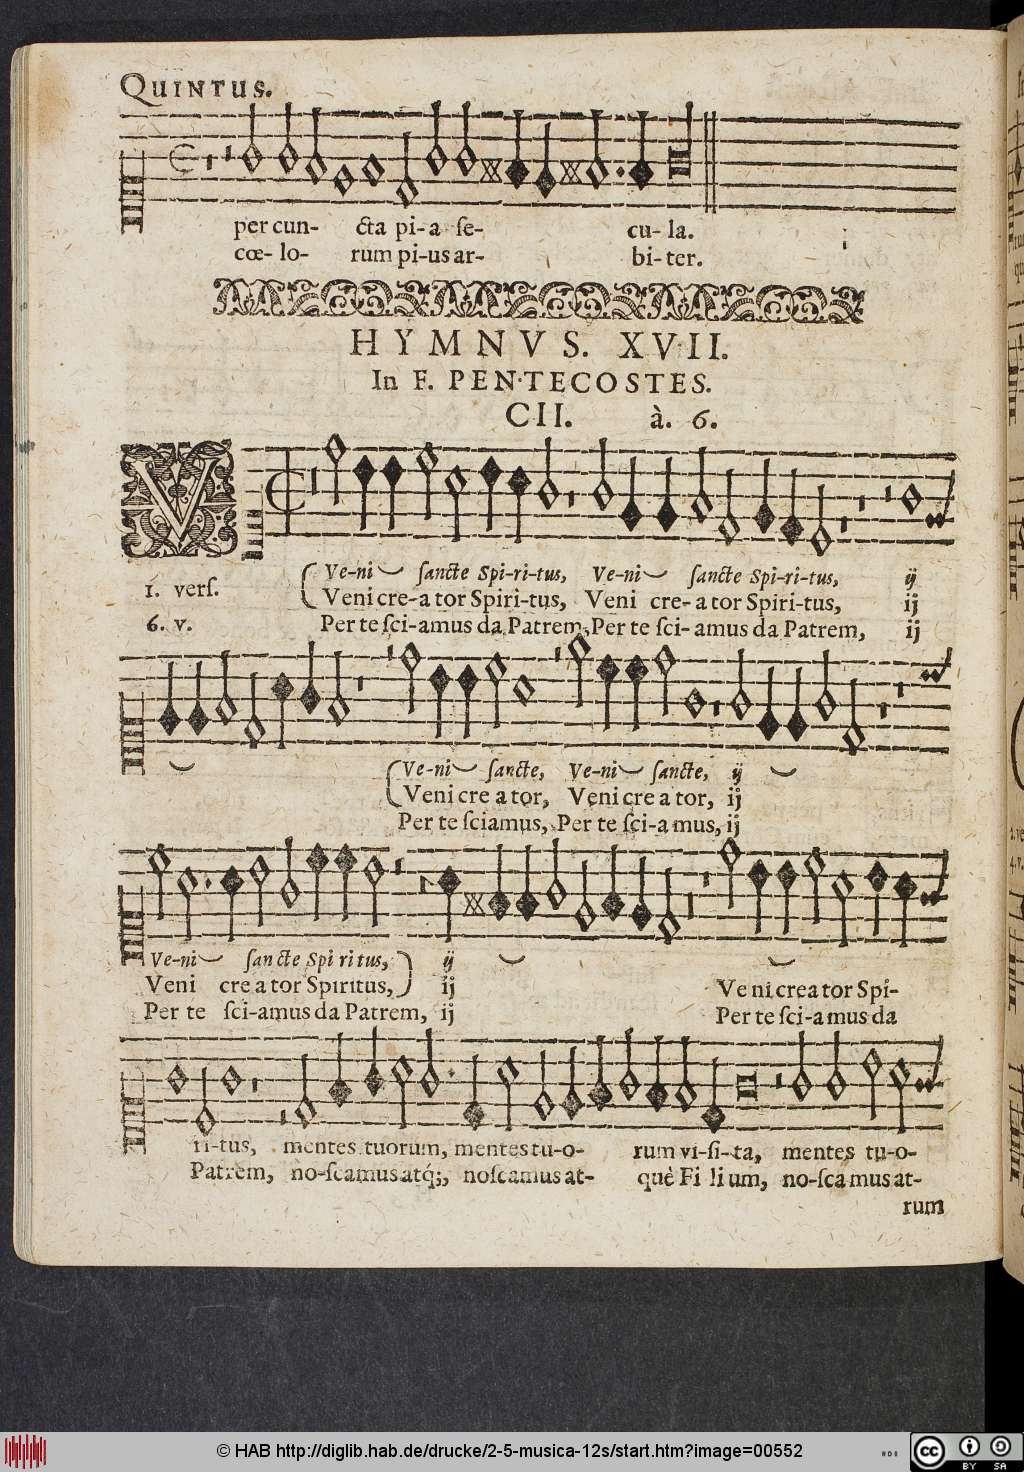 QUINTUS.
per cun- cta pi-a ſe- cu-la.
cœ-lo- rum pi-us ar- bi-ter.
HYMNVS. XVII.
In F. PENTECOSTES.
CII. à. 6.
V
Ve-ni ſancte Spi-ri-tus, Ve-ni ſancte Spi-ri-tus, ij
1. verſ. Veni cre-a tor Spiri-tus, Veni cre-a tor Spiri-tus, ij
6. v. Per te ſci-amus da Patrem, Per te ſci-amus da Patrem, ij
Ve-ni ſancte, Ve-ni ſancte, ij
Veni cre a tor, Veni cre a tor, ij
Per te ſciamus, Per te ſci-a mus, ij
Ve-ni ſan cte Spi ri tus, ij
Veni cre a tor Spiritus, ij Ve ni crea tor Spi-
Per te ſci-amus da Patrem, ij Per te ſci-a mus da
ri-tus, mentes tuorum, mentes tu-o- rum vi-ſi-ta, mentes tu-o-
Patrem, no-ſcamus atq́;, noſcamus at- què Fi li um, no-ſca mus at-
rum
© HAB http://diglib.hab.de/drucke/2-5-musica-12s/start.htm?image=00552
cc BY SA